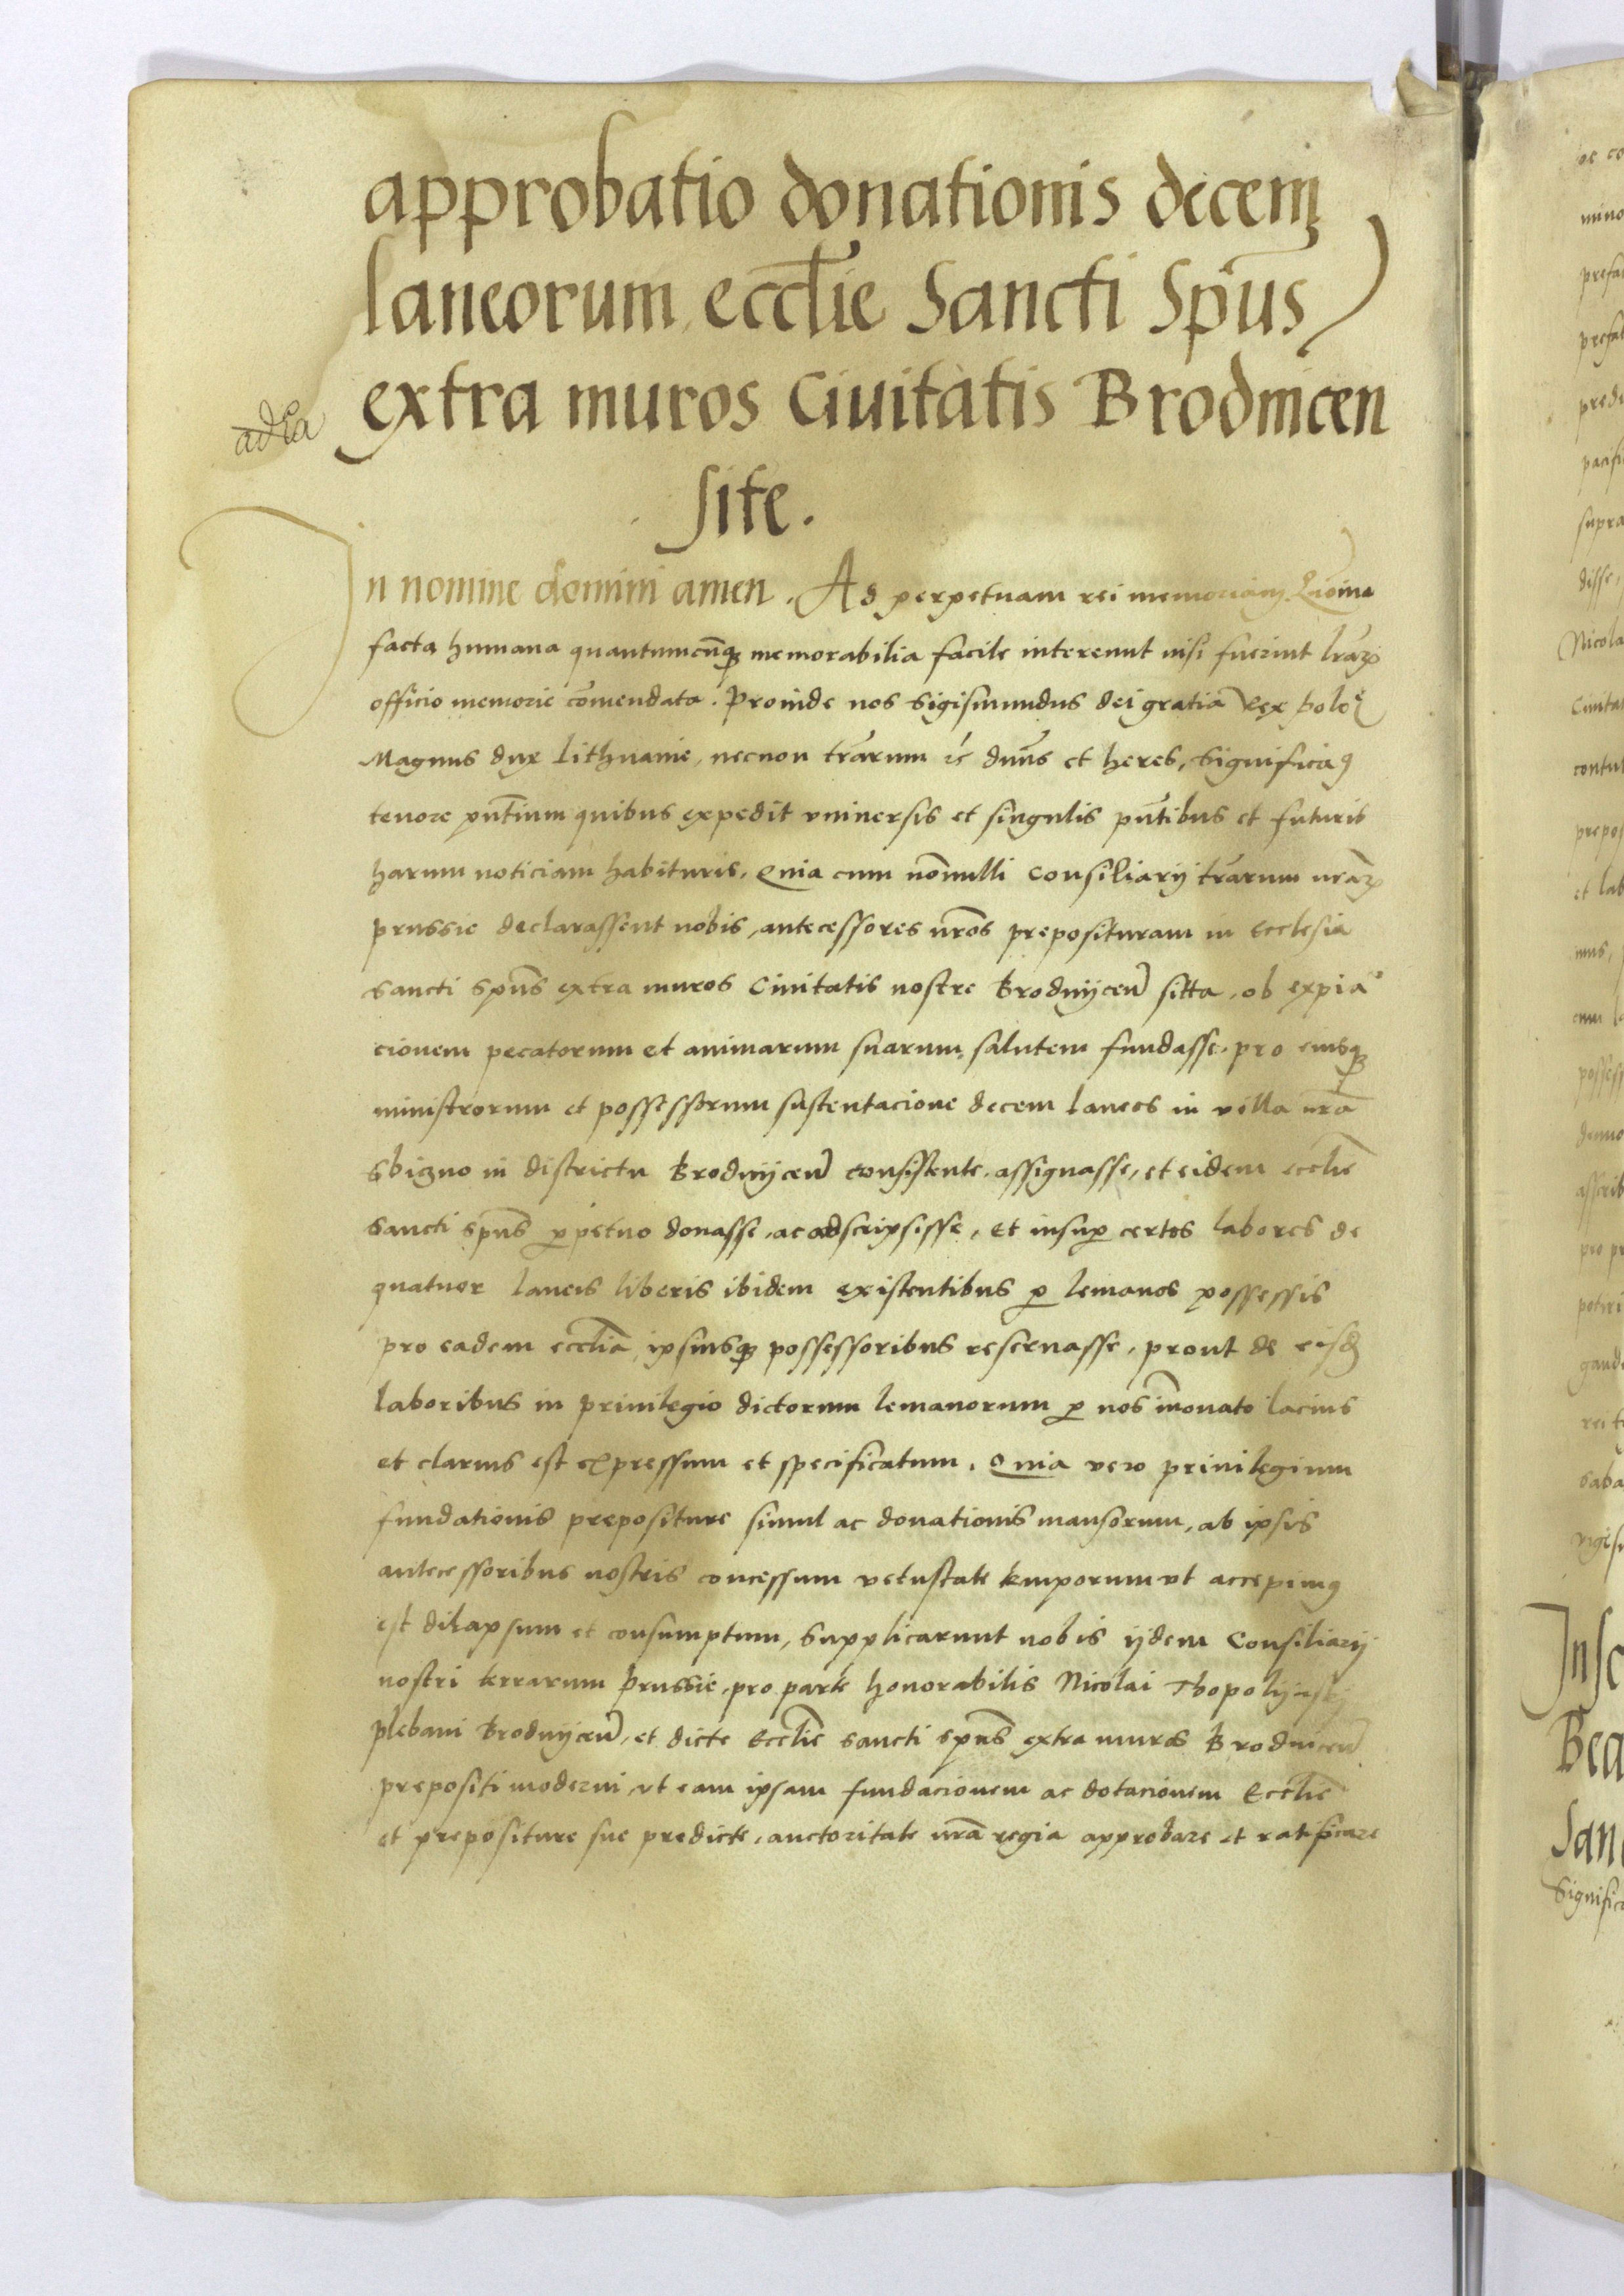 approbatio donationis decem
laneorum, eccl̄ie Sancti Sp̄us
extra muros Ciuitatis Brodnicen
site.
In nomine domini amen. Ad perpetuam rei memoriam. Q̄uoniā
facta humana quantumcūqꝫ memorabilia facile intereunt nisi fuerint lr̄arꝫ
officio memorie cōmendata. Proinde nos Sigismundus dei gratia Rex polo
Magnus dux Lithuanie, necnon tr̄arum ꝛc̄ dn̄us et heres, Significaꝰ
tenore pn̄tium quibus expedit vniuersis et singulis pn̄tibus et futuris
harum noticiam habituris, Quia cum nōnnulli Consiliarij tr̄arum nr̄arꝫ
prussie declarassent nobis, antecessores nr̄os preposituram in Ecclesia
sancti Sp̄us extra muros Ciuitatis nostre Brodnijceñ sitta, ob expia
cionem pecatorum et animarum suarum salutem fundasse, pro eiusqꝫ
ministrorum et possessorum sustentacione decem laneos in villa nr̄a
Sbigno in districtu Brodnijceñ consistente, assignasse, et eidem eccl̄ie
sancti sp̄us ꝑpetuo donasse, ac adscripsisse, et insuꝑ certos labores de
quatuor laneis liberis ibidem existentibus ꝑ lemanos possessis
pro eadem eccl̄ia, ipsiusqꝫ possessoribus reseruasse, prout de eisd
laboribus in priuilegio dictorum lemanorum ꝑ nos īnouato lacius
et clarius est expressum et specificatum. Quia vero priuilegium
fundationis prepositure simul ac donationis mansorum, ab ipsis
antecessoribus nostris concessum vetustate temporum vt accepimꝰ
est dilapsum et consumptum, Supplicarunt nobis ijdem Consiliarij
nostri terrarum Prussie, pro parte honorabilis Nicolai Thopolijnskj
plebani Brodnijceñ, et dicte Eccl̄ie sancti sp̄us extra muros Brodniceñ
prepositi moderni, vt eam ipsam fundacionem ac dotacionem Eccl̄ie
et prepositure sue predicte, auctoritate nr̄a regia approbare et ratificare